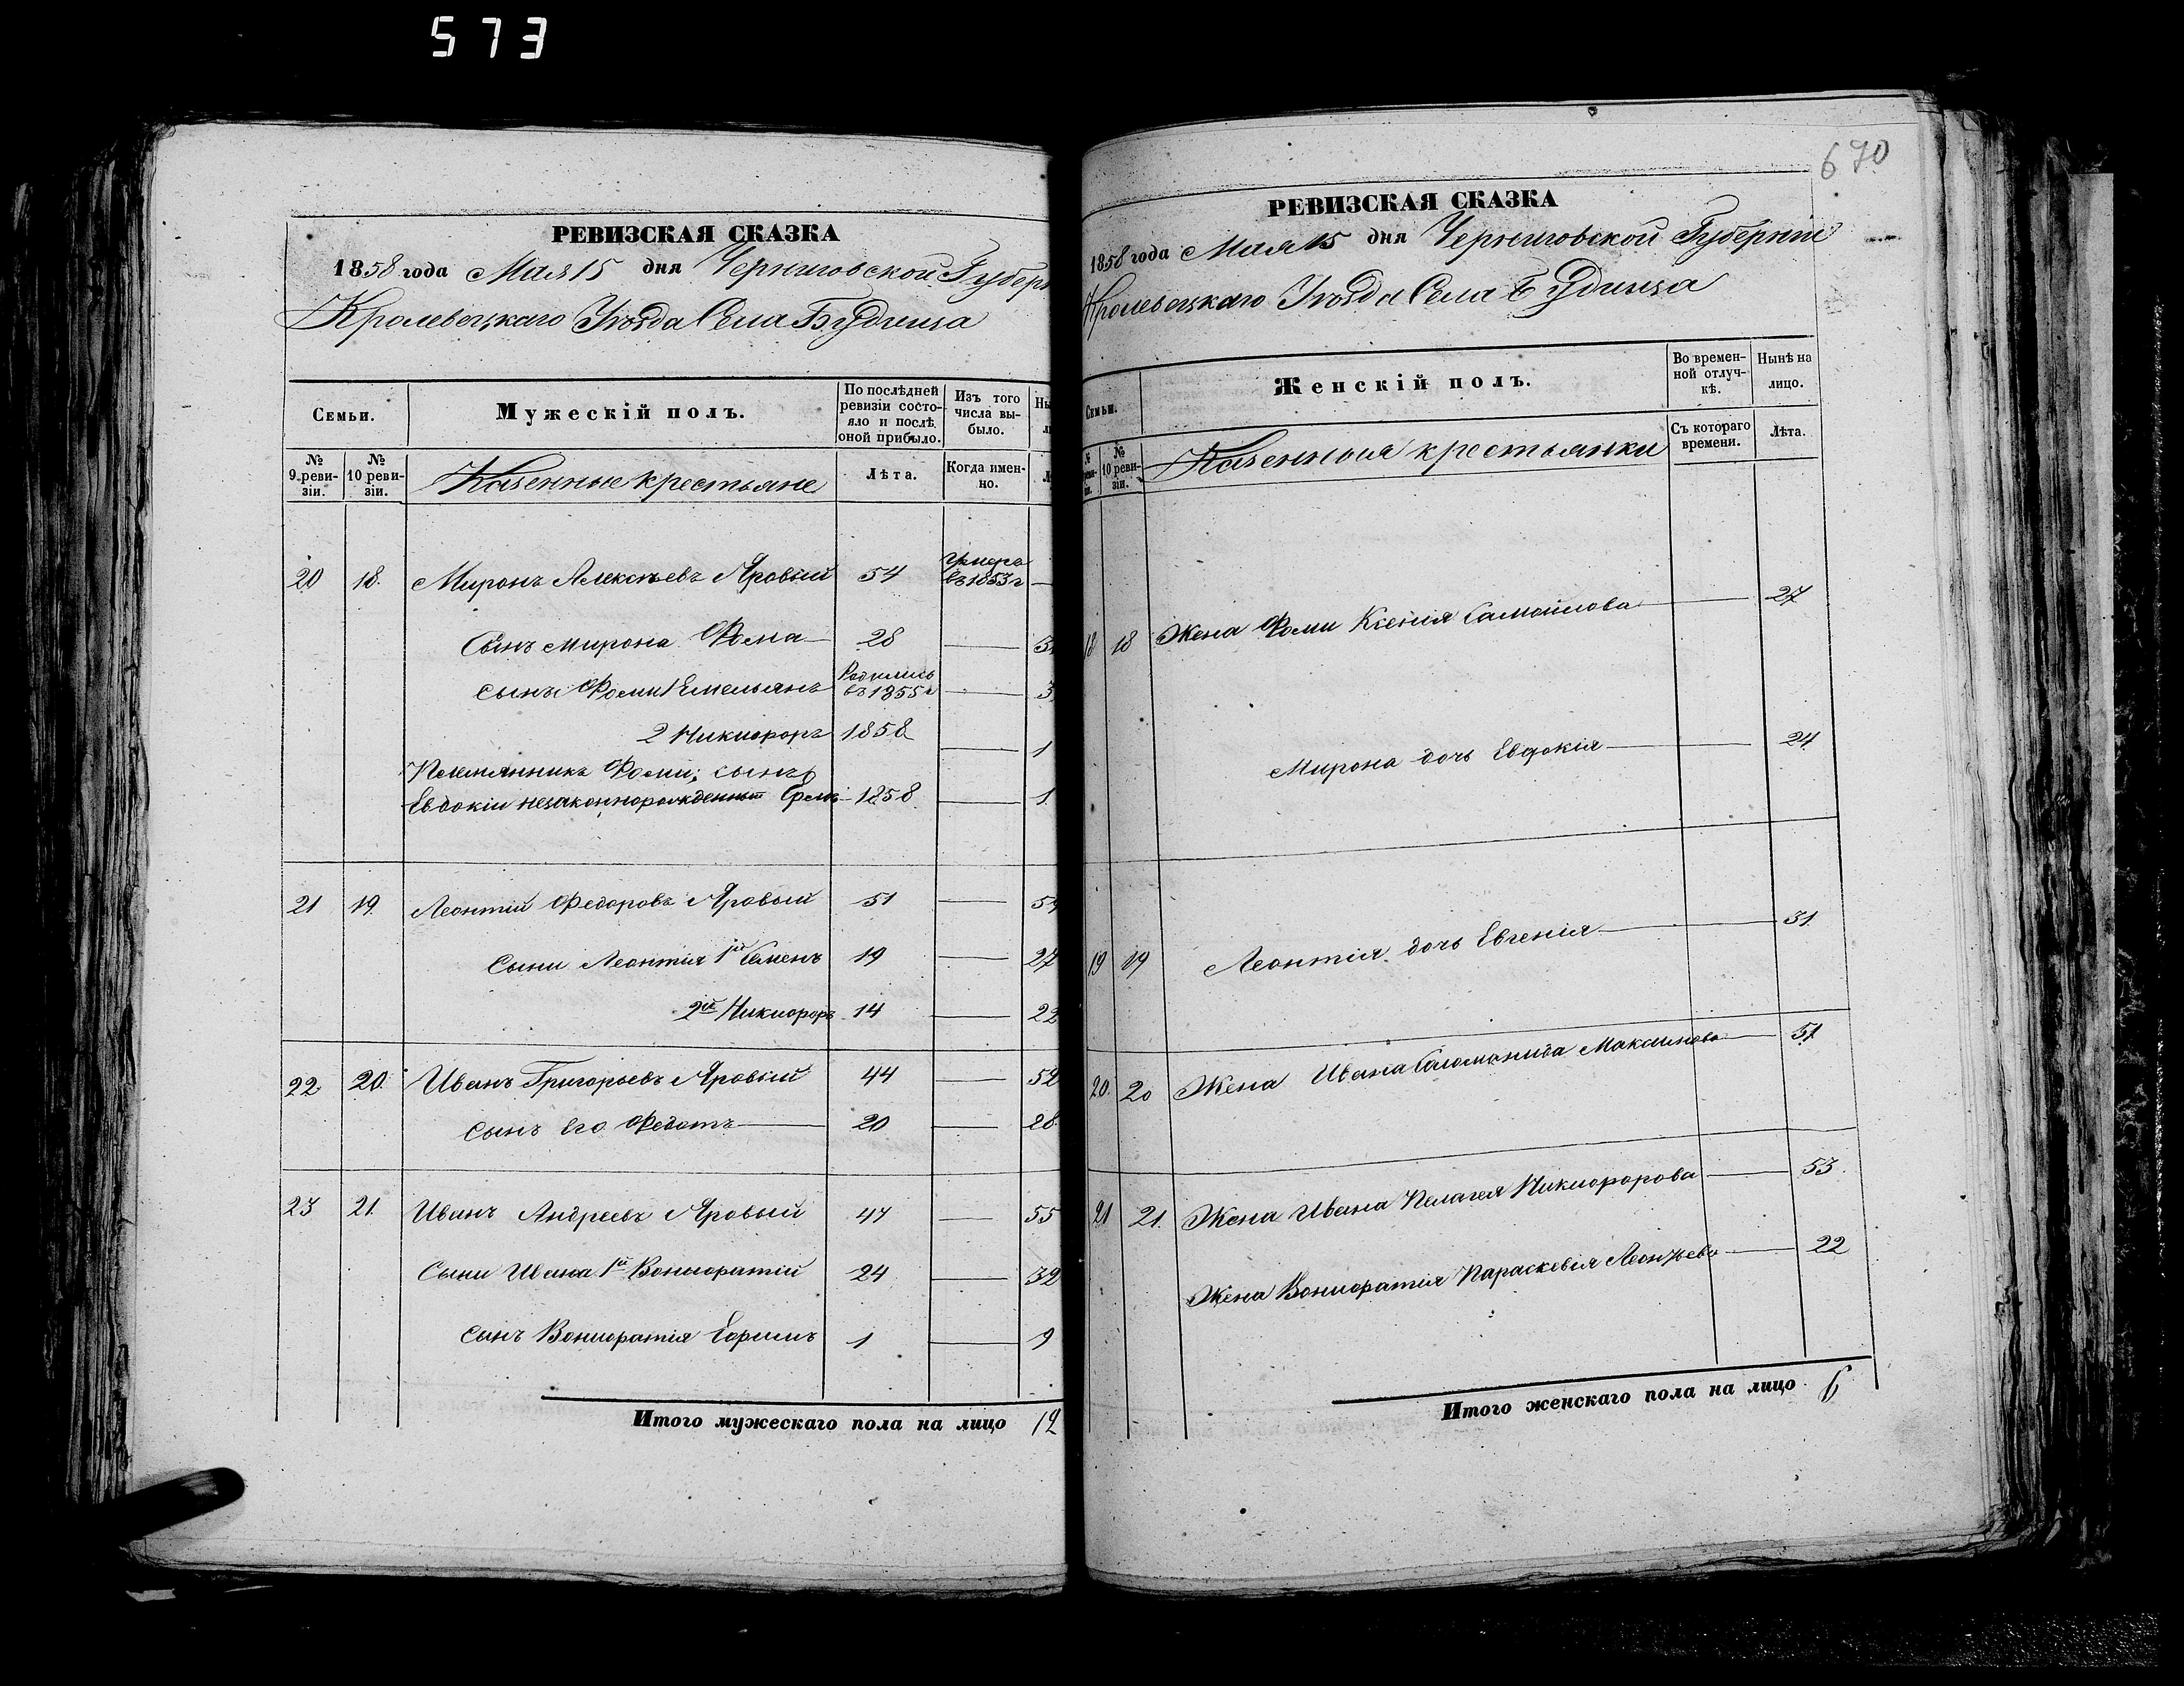 573
РЕВИЗСКАЯ СКАЗКА
1858 года Мая 15 дня Черниговской Губерн
Кролевецкаго Уѣзда Села Будища
Семьи.
Мужескій полъ.
По послѣдней ревизіи состояло и послѣ оной прибыло.
Изъ того числа выбыло.
№ 9 ревизіи.
№ 10 ревизіи.
Казенные крестьяне
Лѣта.
Когда именно.
20 18. Миронъ Алексѣевъ Яровый 54 умеръ въ 1853 г —
Сынъ Мирона Фома — 28 —
Сынъ Фоми 1 Емельянъ Родились въ 1855 г — 3
2 Никифоръ 1858 — 1
Племянникъ Фоми; сынъ
Евдокіи незаконнорожденный 1858. — 1.
21 19. Леонтій Федоровъ Яровый 51 —
Сыни Леонтія 1й Семенъ 19 — 27
2й Никифоръ 14 — 22
22 20. Иванъ Григорьевъ Яровый 44 — 52
Сынъ Его Федотъ — 20 — 28
23 21. Иванъ Андреевъ Яровый 47 — 55
Сыни Ивана 1й Вонифатій 24 — 32
Сынъ Вонифатія Ефимъ 1 — 9
Итого мужескаго пола на лицо 12
670
РЕВИЗСКАЯ СКАЗКА
1858 года Мая 15 дня Черниговской Губерніи
Кролевецкаго Уѣзда Села Будища
Семьи.
Женскій полъ.
Во временной отлучкѣ.
Нынѣ на лицо.
№ 10 ревизіи.
Казенныя крестьянки
Съ котораго времени.
Лѣта.
18 18 Жена Фоми Ксенія Самойлова — 27
Мирона дочь Евдокія — 24
19 19 Леонтія дочь Евгенія — 31.
20. 20 Жена Ивана Саломанида Максимова — 51
21 21. Жена Ивана Пелагея Никифорова — 53.
Жена Вонифатія Параскевія Леонтьева — 22
Итого женскаго пола на лицо 6